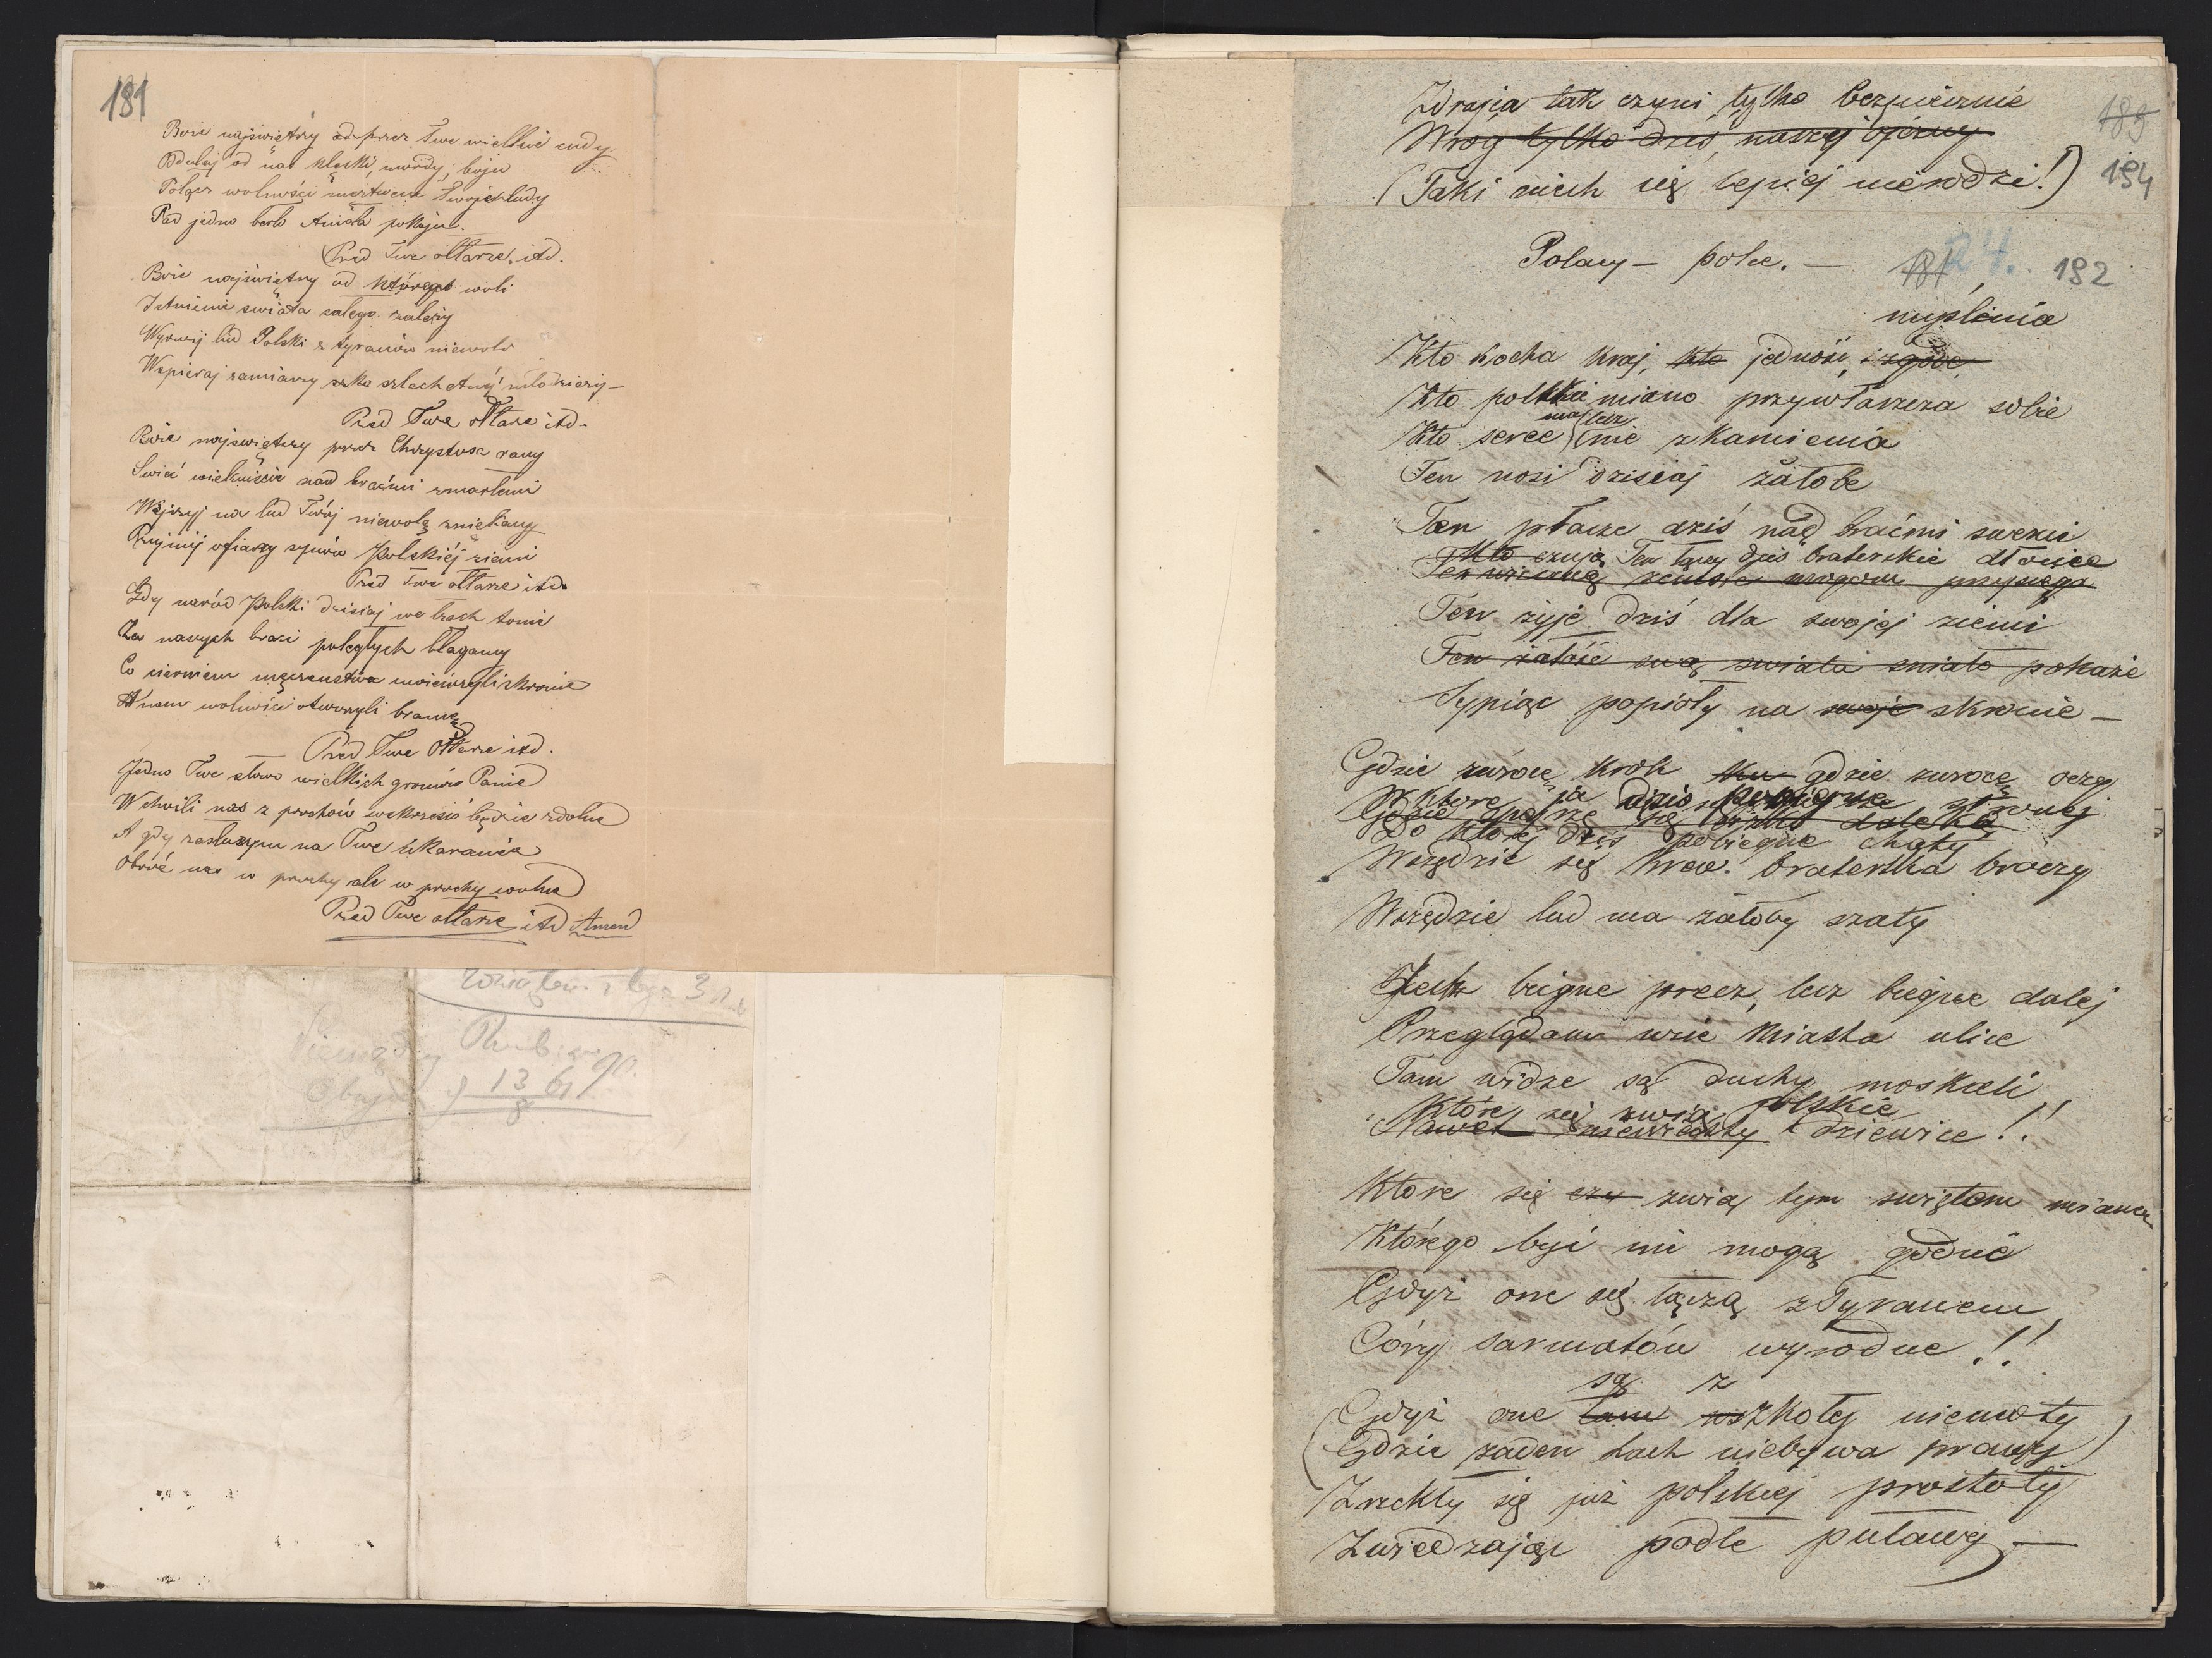 181
Boże najświętszy przez Twe wielkie cudy
Oddalaj od nas klęski, mordy, boju
Połącz wolności węzłem Twoje ludy
Pod jedno berło Anioła pokoju.
Przed Twe ołtarze, itd.
Boże najświętszy od którego woli
Istnienie świata całego zależy
Wyrwij lud Polski z tyranów niewoli
Wspieraj zamiary szlachetnéj młodzieży —
Przed Twe ołtarze itd.
Boże najświętszy przez Chrystusa rany
Świeć wiekuiście nad braćmi zmarłemi
Wejrzyj na lud Twój niewolą znękany
Przyjmij ofiary synów Polskiéj ziemi
Przed Twe ołtarze itd
Gdy naród Polski dzisiaj we łzach tonie
Za naszych braci poległych błagamy
Co cierniem męczeństwa uwieńczyli skronie
I nam wolności otworzyli bramę
Przed Twe Ołtarze itd.
Jedno Twe słowo wielkich gromów Panie
W chwili nas z prochów wskrzesić będzie zdolne
A gdy zasłużym na Twe ukaranie
Obróć nas w prochy ale w prochy wolne
Przed Twe ołtarze itd Amen
13 61
8
Zdrajca tak czyni tylko bezpiecznie
Wróg tylko dziś, naszej ojczyzny
(Taki niech się lepiej nierodzi!)
183
184
Polacy — polce. —
181 R4. 182
myślenia
Kto kocha kraj, kto jedność, i zgodę
Kto polskie miano przywłaszcza sobie
ma lecz
Kto serce nie z kamienia
Ten nosi dzisiaj żałobe
Ten płacze dziś nad braćmi swemi
Kto czują Ten łączy dziś braterskie dłonie
zemste wrogom przysięga
Ten żyje dziś dla swojej ziemi
Ten żałość swą swiatu smiało pokaże
Sypiąc popioły na swoje skronie —
Gdzie zwróce krok ku gdzie zwrócę oczy
Do której dziś pobiegne chaty
Wszędzie się krew braterska broczy
Wszędzie lud ma żałoby szaty
Jech biegne precz, lecz biegne dalej
Przeglądam wsie miasta ulice
Tam widze są duchy moskali
Które się zwią polskie
Nawet niewiasty dziewice!!
Które się czy zwią tym swiętem mianem
Którego być nie mogą godne
Gdyż one się łączą z Tyranem
Córy sarmatów wyrodne!!
są z
(Gdyż one tam szkoły niemoty
Gdzie żaden Lach niebywa prawy)
Zrzekły się już polskiej prostoty
Zwiedzając podłe puławy —